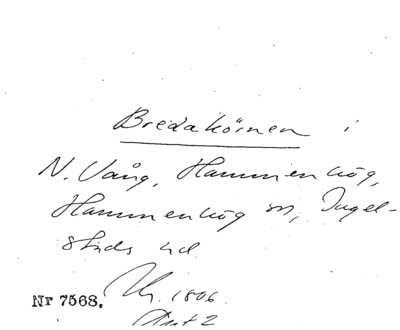 Bredakörnen i
N. Vång, Hammenhög,
Hammenhög sn, Ingel-
stads hd
Nr 7568. 1806.